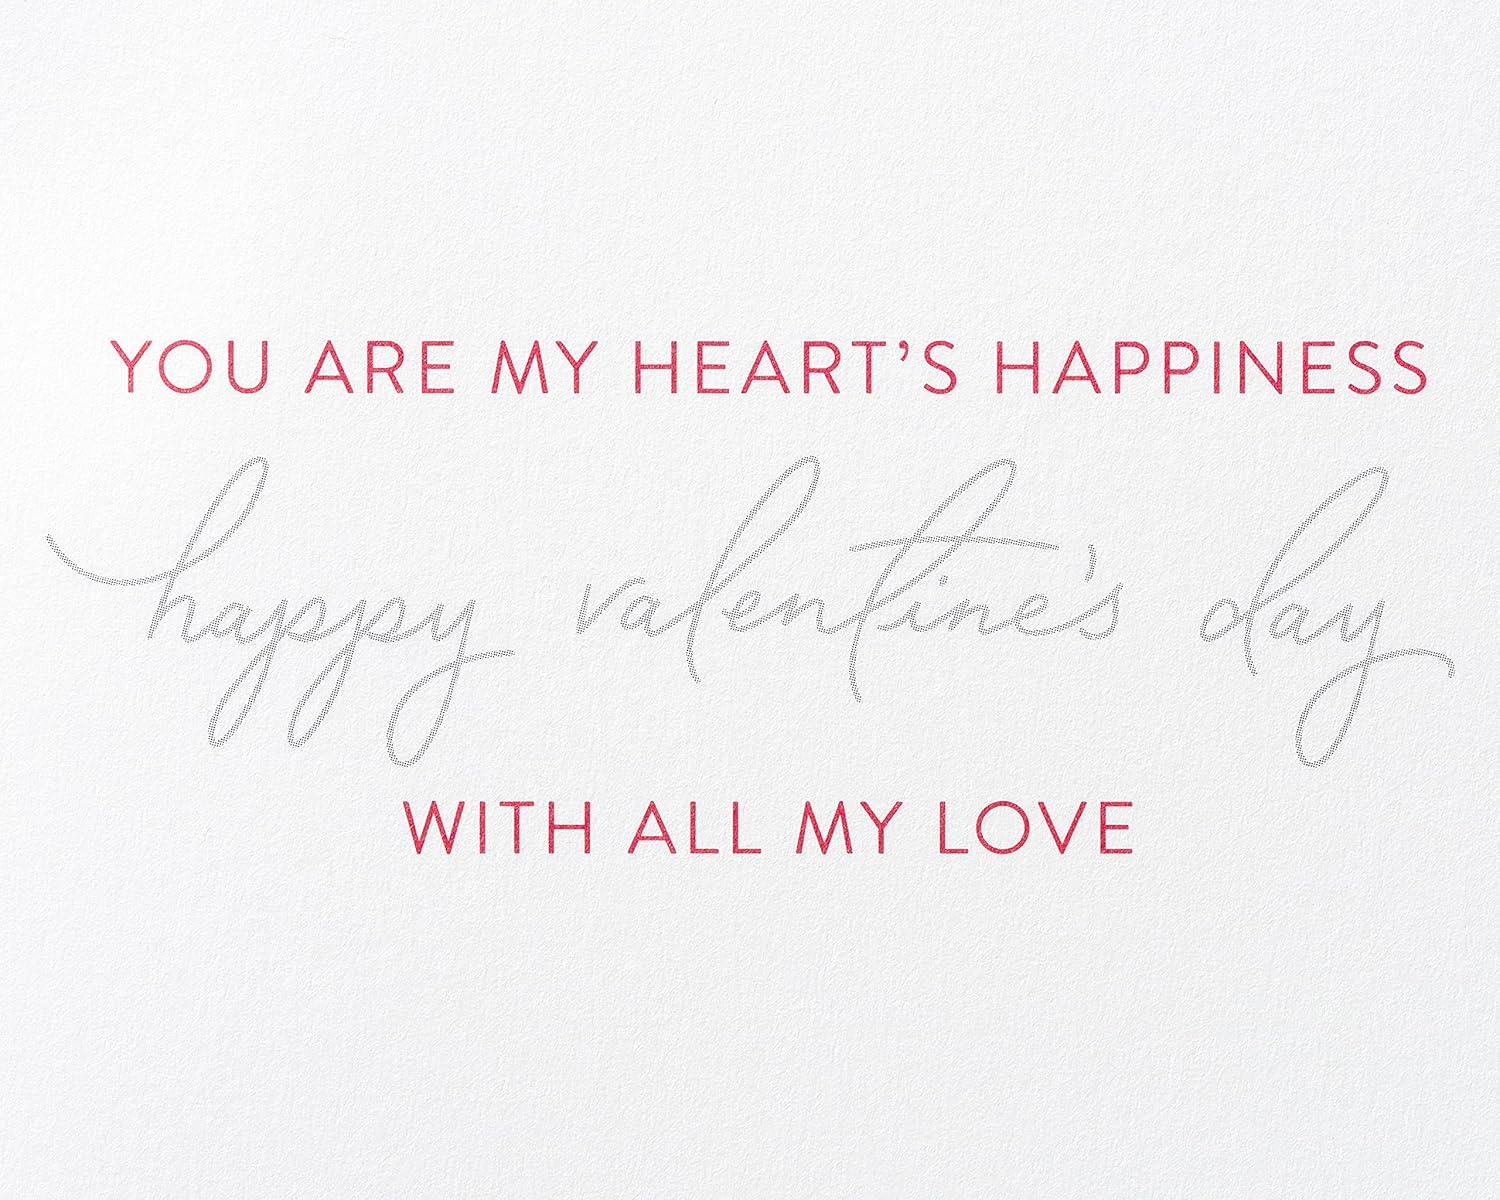 YOU ARE MY HEART’S HAPPINESS
happy valentine's day
WITH ALL MY LOVE